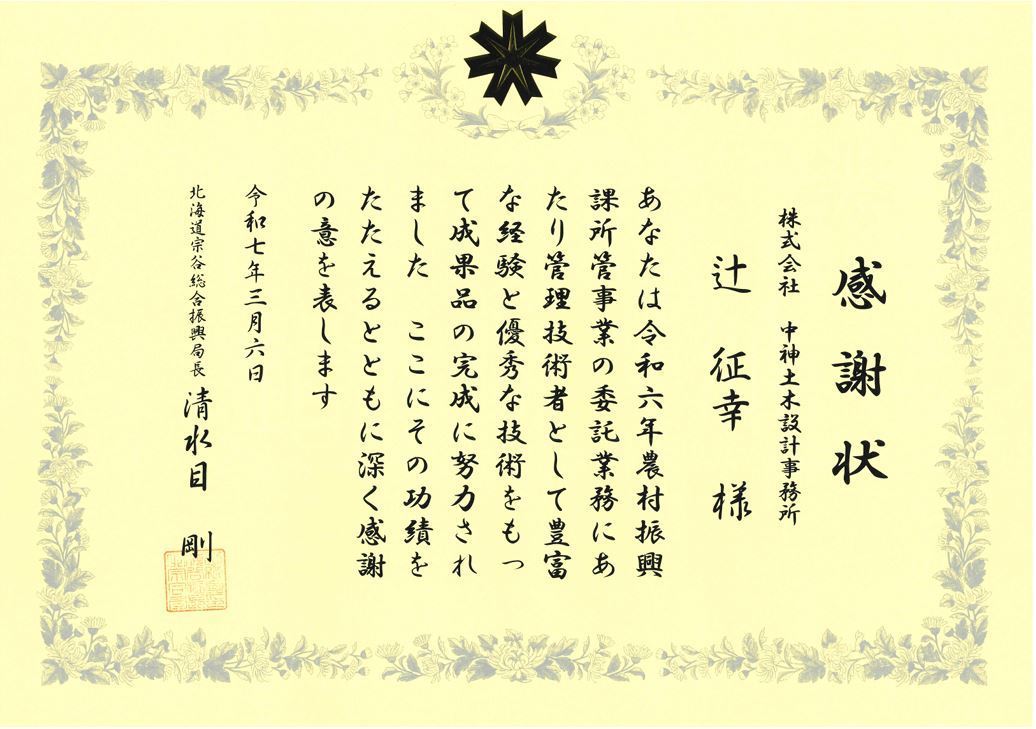 感謝状
株式会社　中神土木設計事務所
辻　征幸　様
あなたは令和六年農村振興
課所管事業の委託業務にあ
たり管理技術者として豊富
な経験と優秀な技術をもっ
て成果品の完成に努力され
ました　ここにその功績を
たたえるとともに深く感謝
の意を表します
令和七年三月六日
北海道宗谷総合振興局長　清水目　剛